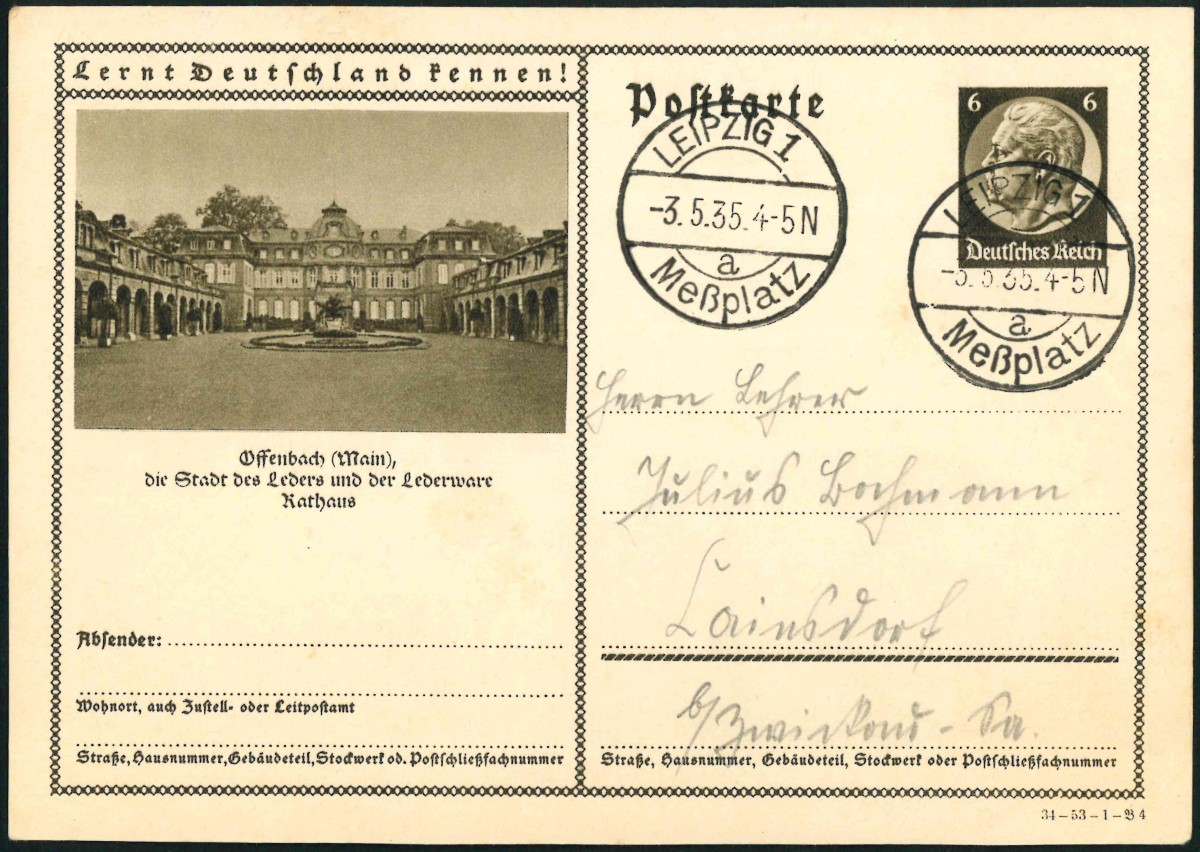 Lernt Deutschland kennen!
Offenbach (Main),
die Stadt des Leders und der Lederware
Rathaus
Absender:
Wohnort, auch Zustell- oder Leitpostamt
Straße, Hausnummer, Gebäudeteil, Stockwerk od. Postschließfachnummer
Postkarte
LEIPZIG 1
-3.5.35.4-5N
a
Meßplatz
6 6
Deutsches Reich
LEIPZIG 1
-3.5.35.4-5N
a
Meßplatz
Herrn Lehrer
Julius Bachmann
Cainsdorf
b/Zwickau - Sa.
Straße, Hausnummer, Gebäudeteil, Stockwerk oder Postschließfachnummer
34-53-1-B 4